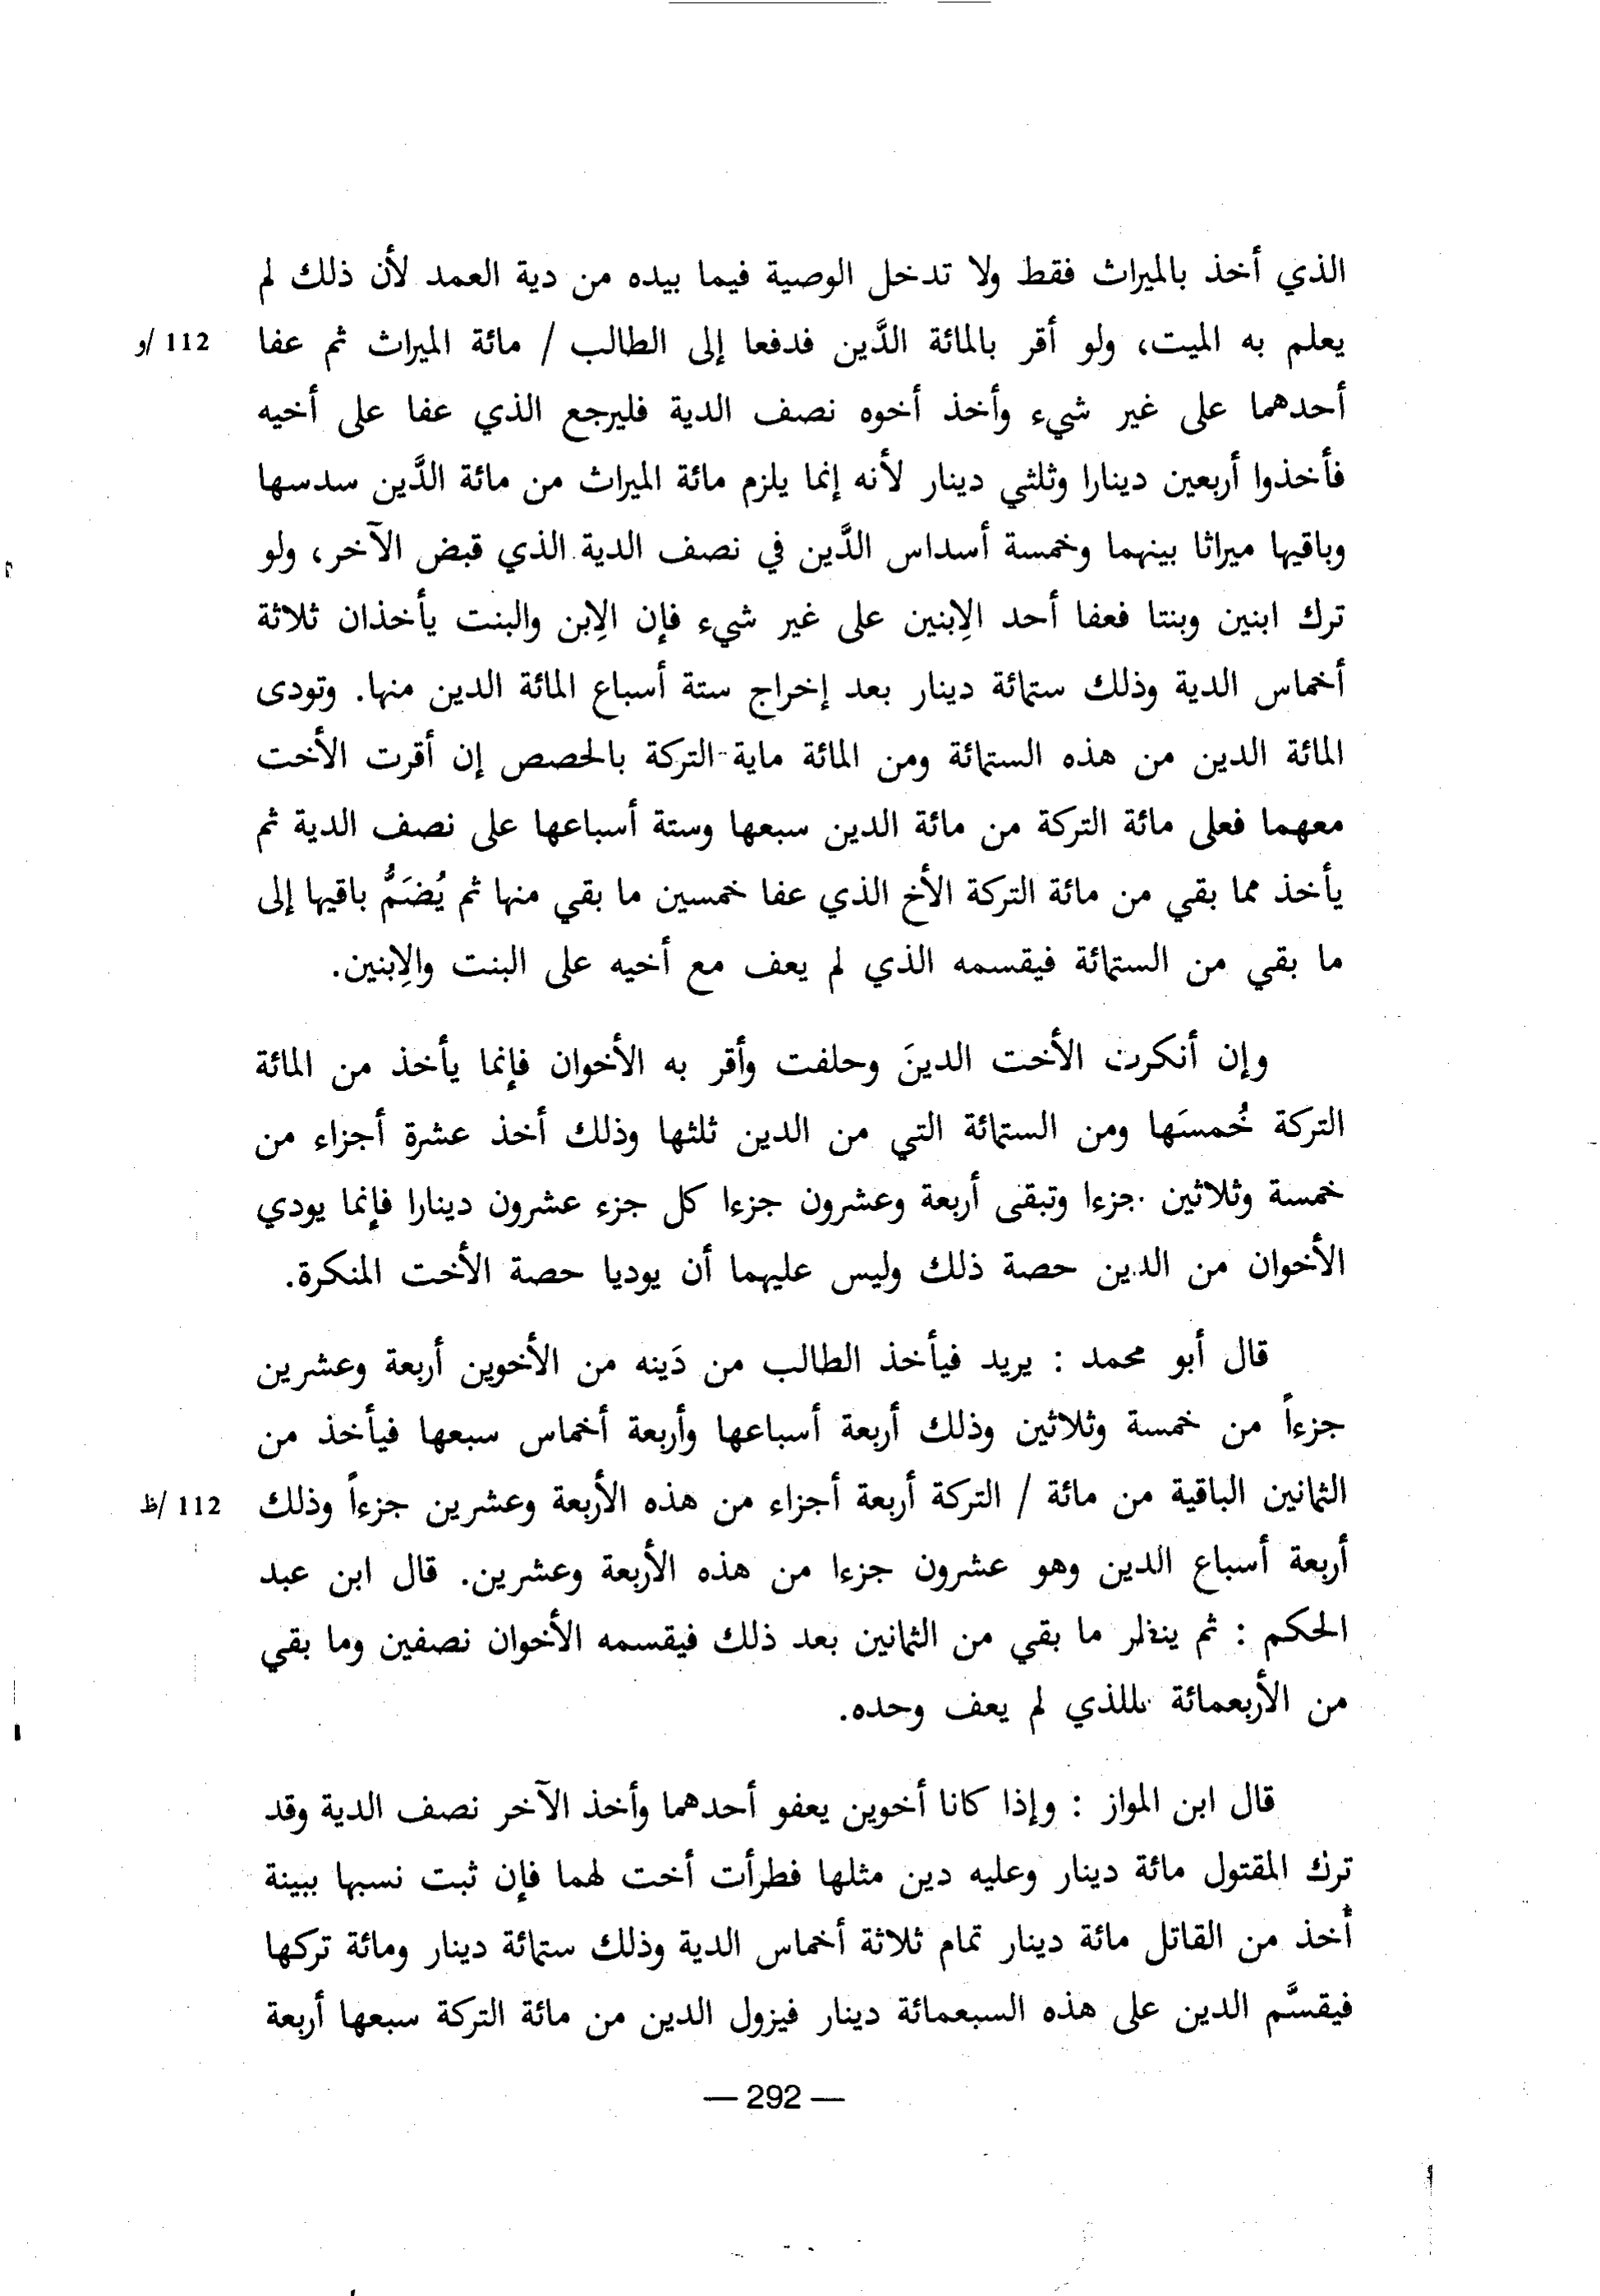 الذي أخذ بالميراث فقط ولا تدخل الوصية فيما بيده من دية العمد لأن ذلك لم
يعلم به الميت، ولو أقر بالمائة الدَّين فدفعا إلى الطالب / مائة الميراث ثم عفا
112 /و
أحدهما على غير شيء وأخذ أخوه نصف الدية فليرجع الذي عفا على أخيه
فأخذوا أربعين دينارا وثلثي دينار لأنه إنما يلزم مائة الميراث من مائة الدَّين سدسها
وباقيها ميراثا بينهما وخمسة أسداس الدَّين في نصف الدية الذي قبض الآخر، ولو
ترك ابنين وبنتا فعفا أحد الإبنين على غير شيء فإن الإبن والبنت يأخذان ثلاثة
أخماس الدية وذلك ستمائة دينار بعد إخراج ستة أسباع المائة الدين منها. وتودى
المائة الدين من هذه الستمائة ومن المائة ماية التركة بالحصص إن أقرت الأخت
معهما فعلى مائة التركة من مائة الدين سبعها وستة أسباعها على نصف الدية ثم
يأخذ مما بقي من مائة التركة الأخ الذي عفا خمسين ما بقي منها ثم يُضَمُّ باقيها إلى
ما بقي من الستمائة فيقسمه الذي لم يعف مع أخيه على البنت والإبنين.
وإن أنكرت الأخت الدينَ وحلفت وأقر به الأخوان فإنما يأخذ من المائة
التركة خُمسَها ومن الستمائة التي من الدين ثلثها وذلك أخذ عشرة أجزاء من
خمسة وثلاثين جزءا وتبقى أربعة وعشرون جزءا كل جزء عشرون دينارا فإنما يودي
الأخوان من الدين حصة ذلك وليس عليهما أن يوديا حصة الأخت المنكرة.
قال أبو محمد : يريد فيأخذ الطالب من دَينه من الأخوين أربعة وعشرين
جزءاً من خمسة وثلاثين وذلك أربعة أسباعها وأربعة أخماس سبعها فيأخذ من
الثمانين الباقية من مائة / التركة أربعة أجزاء من هذه الأربعة وعشرين جزءاً وذلك
112 /ظ
أربعة أسباع الدين وهو عشرون جزءا من هذه الأربعة وعشرين. قال ابن عبد
الحكم : ثم ينظر ما بقي من الثمانين بعد ذلك فيقسمه الأخوان نصفين وما بقي
من الأربعمائة للذي لم يعف وحده.
قال ابن المواز : وإذا كانا أخوين يعفو أحدهما وأخذ الآخر نصف الدية وقد
ترك المقتول مائة دينار وعليه دين مثلها فطرأت أخت لهما فإن ثبت نسبها ببينة
أُخذ من القاتل مائة دينار تمام ثلاثة أخماس الدية وذلك ستمائة دينار ومائة تركها
فيقسَّم الدين على هذه السبعمائة دينار فيزول الدين من مائة التركة سبعها أربعة
— 292 —